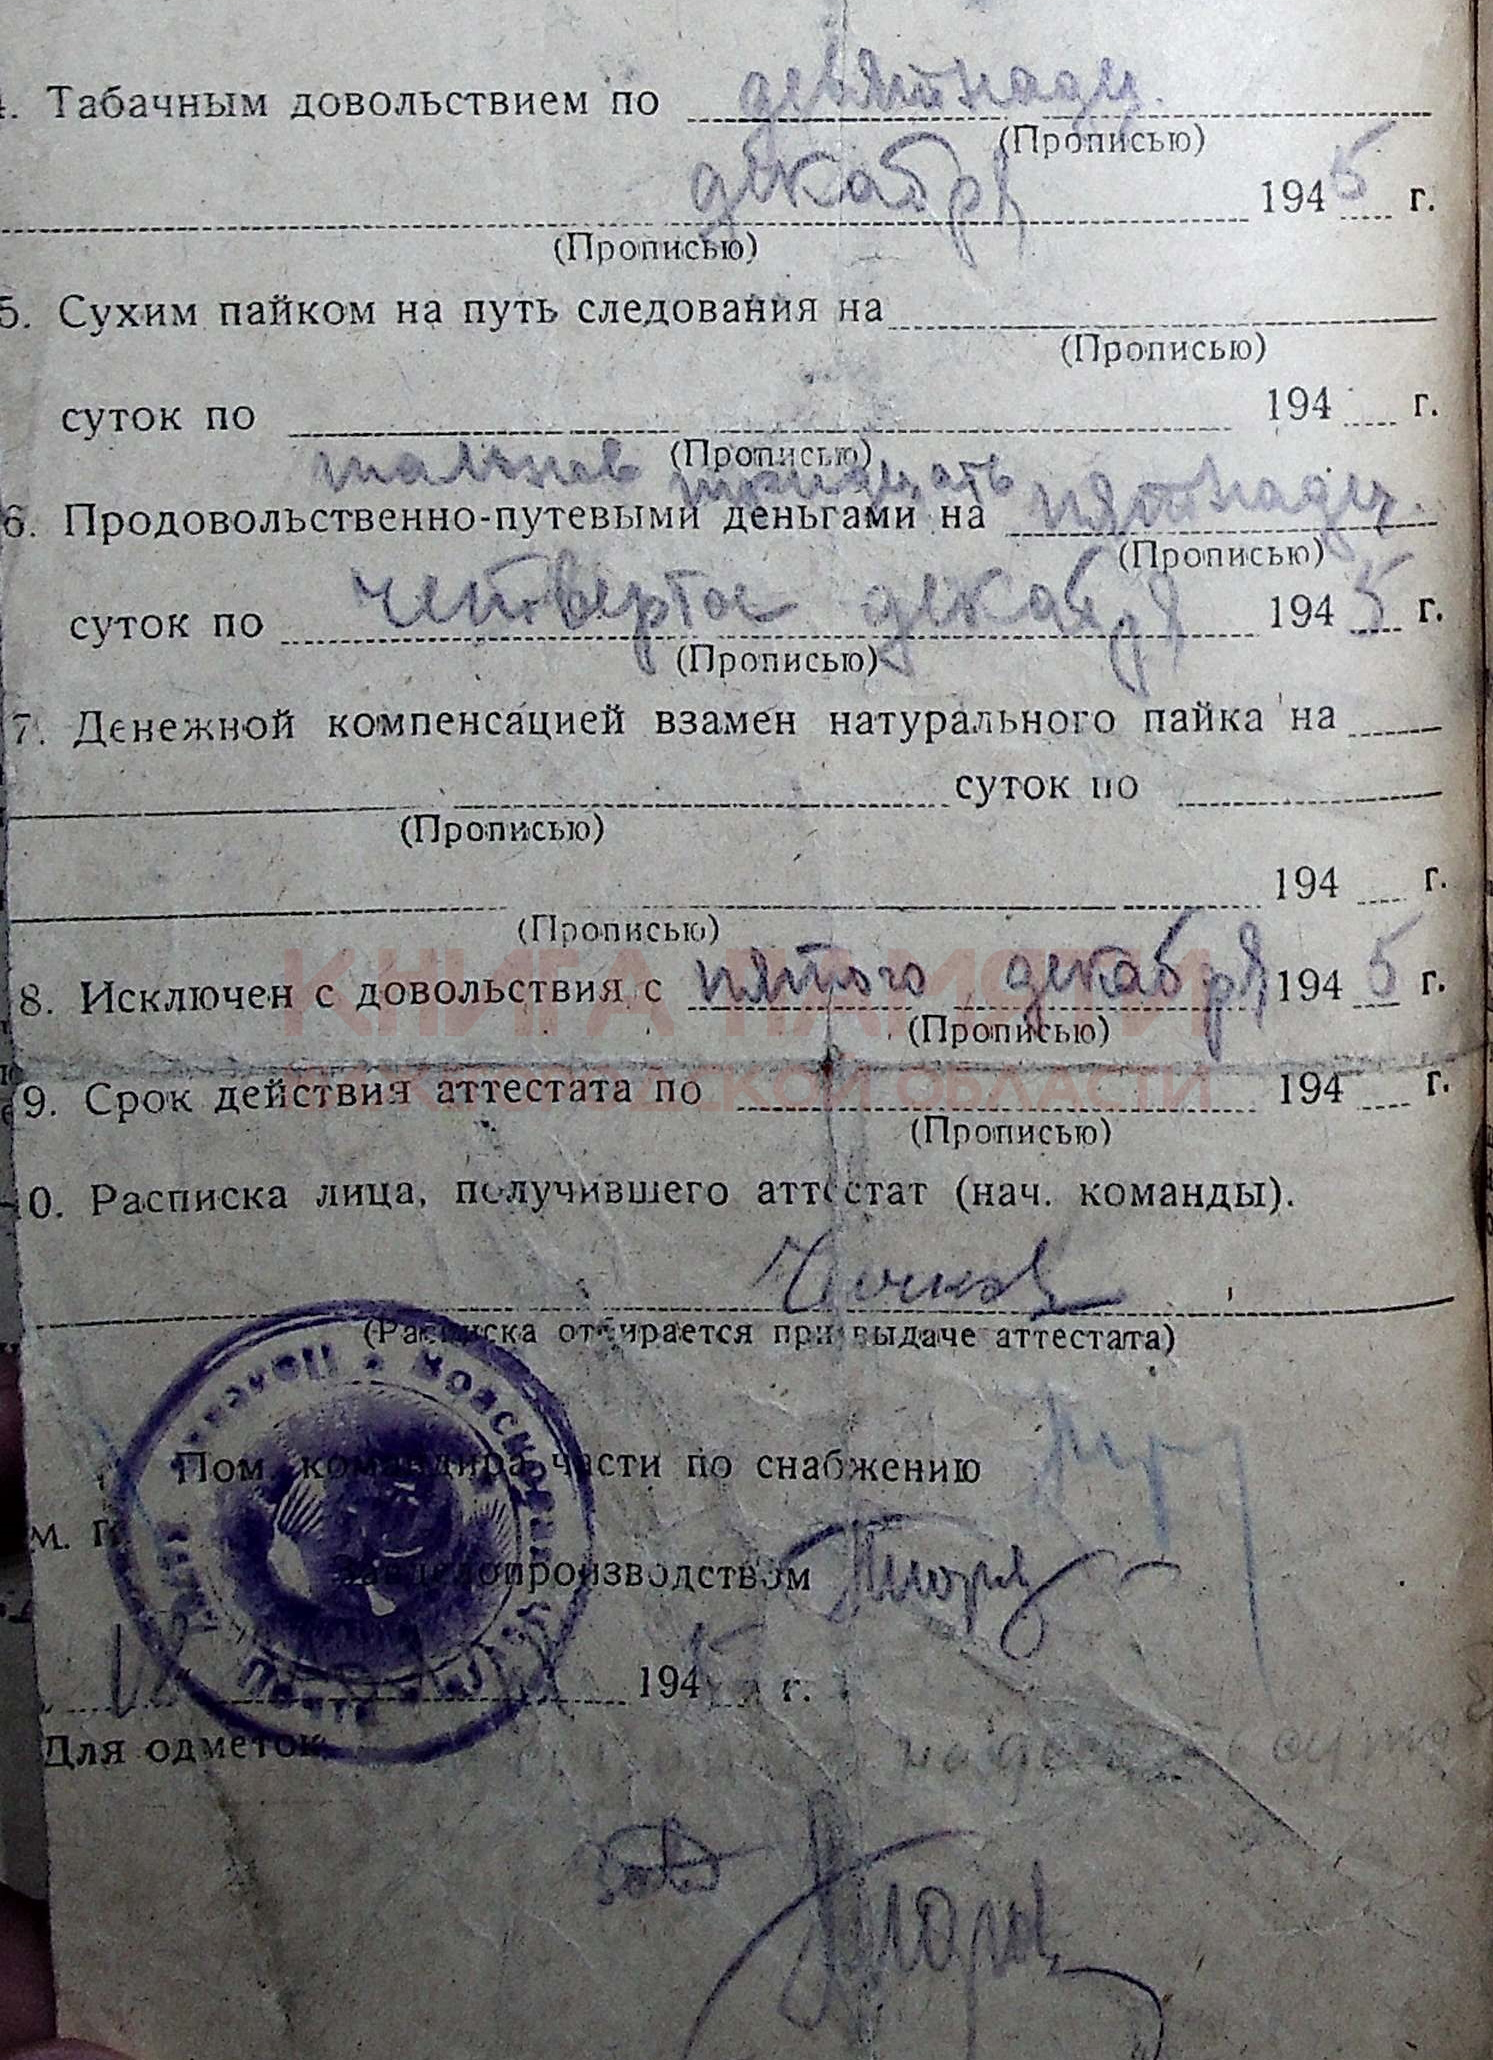 4. Табачным довольствием по девятнадц.
(Прописью)
декабря 1945 г.
(Прописью)
5. Сухим пайком на путь следования на
(Прописью)
суток по 194 г.
(Прописью)
тридцать
6. Продовольственно-путевыми деньгами на пятнадц.
(Прописью)
суток по четвертое декабря 1945 г.
(Прописью)
7. Денежной компенсацией взамен натурального пайка на
суток по
(Прописью)
194 г.
(Прописью)
КНИГА ПАМЯТИ
8. Исключен с довольствия с пятого декабря 1945 г.
(Прописью)
НИЖЕГОРОДСКОЙ ОБЛАСТИ
9. Срок действия аттестата по 194 г.
(Прописью)
10. Расписка лица, получившего аттестат (нач. команды).
(Расписка отбирается при выдаче аттестата)
Пом. командира части по снабжению
М. П.
Завделопроизводством
1945 г.
Для отметок
Полевая Почта